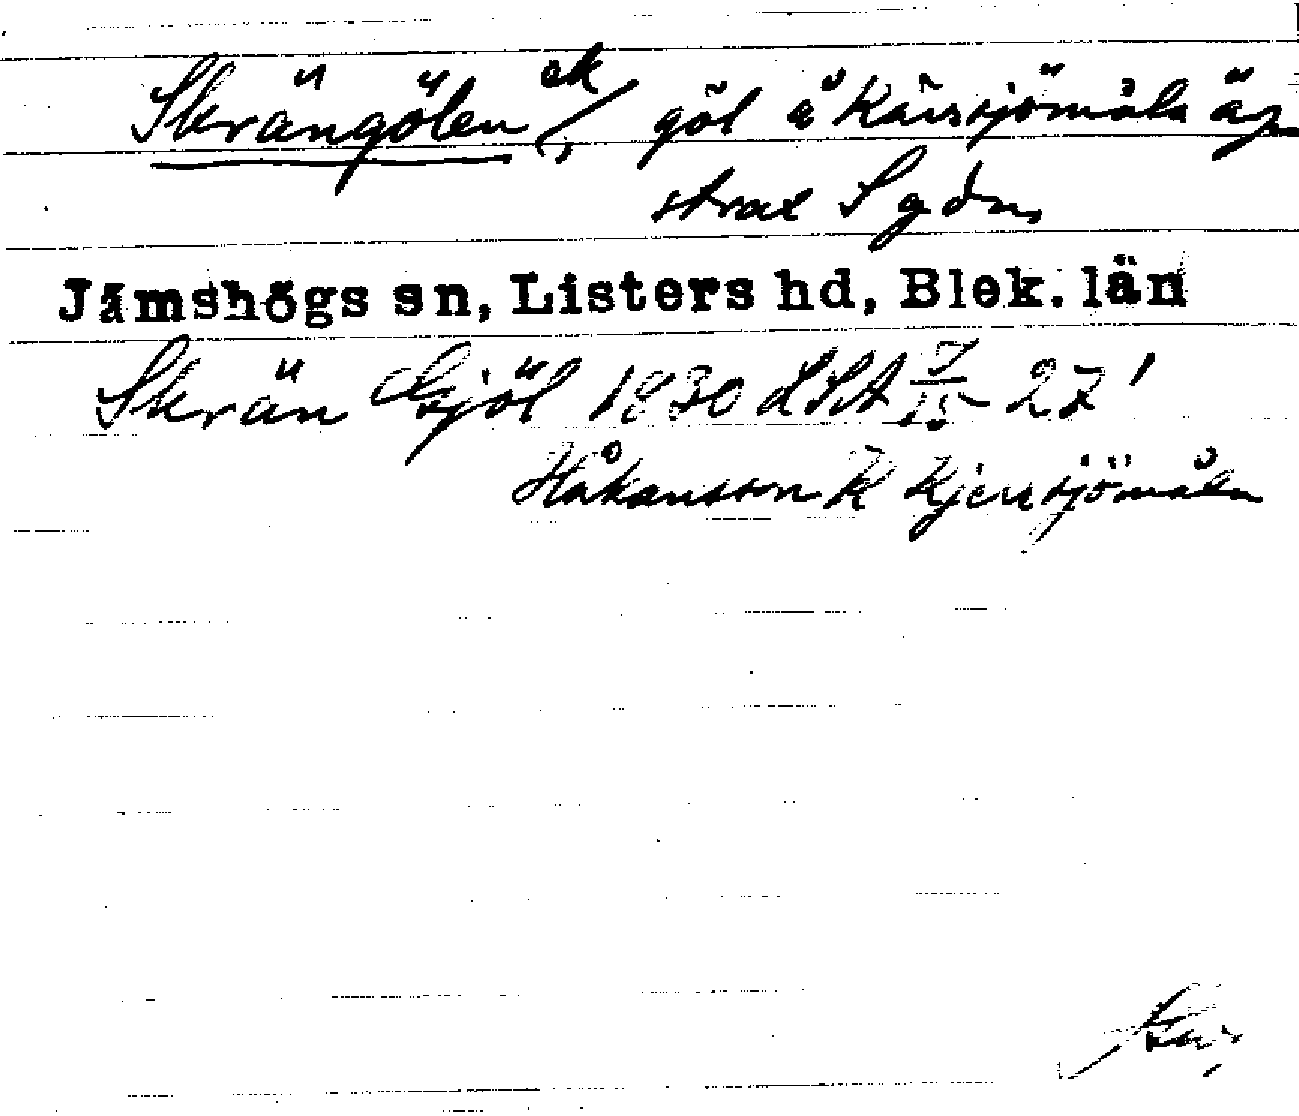 Skrängölen ek/, göl å Kärrsjömåla äg
strax S gdn,
Jämshögs sn, Listers hd, Blek. län
Skrän Gjöl 1830 LSA J/15 27'
Håkansson K Kjerrsjömåla